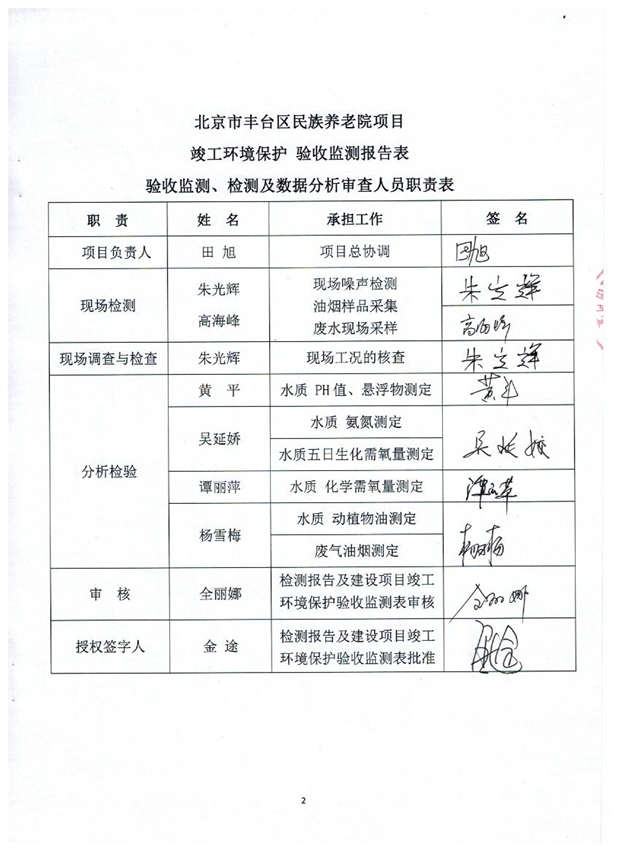 北京市丰台区民族养老院项目
竣工环境保护 验收监测报告表
验收监测、检测及数据分析审查人员职责表
职 责 姓 名 承担工作 签 名
项目负责人 田 旭 项目总协调 田旭
现场检测 朱光辉 现场噪声检测 朱光辉
油烟样品采集
高海峰 废水现场采样 高海峰
现场调查与检查 朱光辉 现场工况的核查 朱光辉
分析检验 黄 平 水质 PH 值、悬浮物测定 黄平
吴延娇 水质 氨氮测定 吴延娇
水质五日生化需氧量测定
谭丽萍 水质 化学需氧量测定 谭丽萍
杨雪梅 水质 动植物油测定 杨雪梅
废气油烟测定
审 核 全丽娜 检测报告及建设项目竣工 全丽娜
环境保护验收监测表审核
授权签字人 金 途 检测报告及建设项目竣工
环境保护验收监测表批准
2